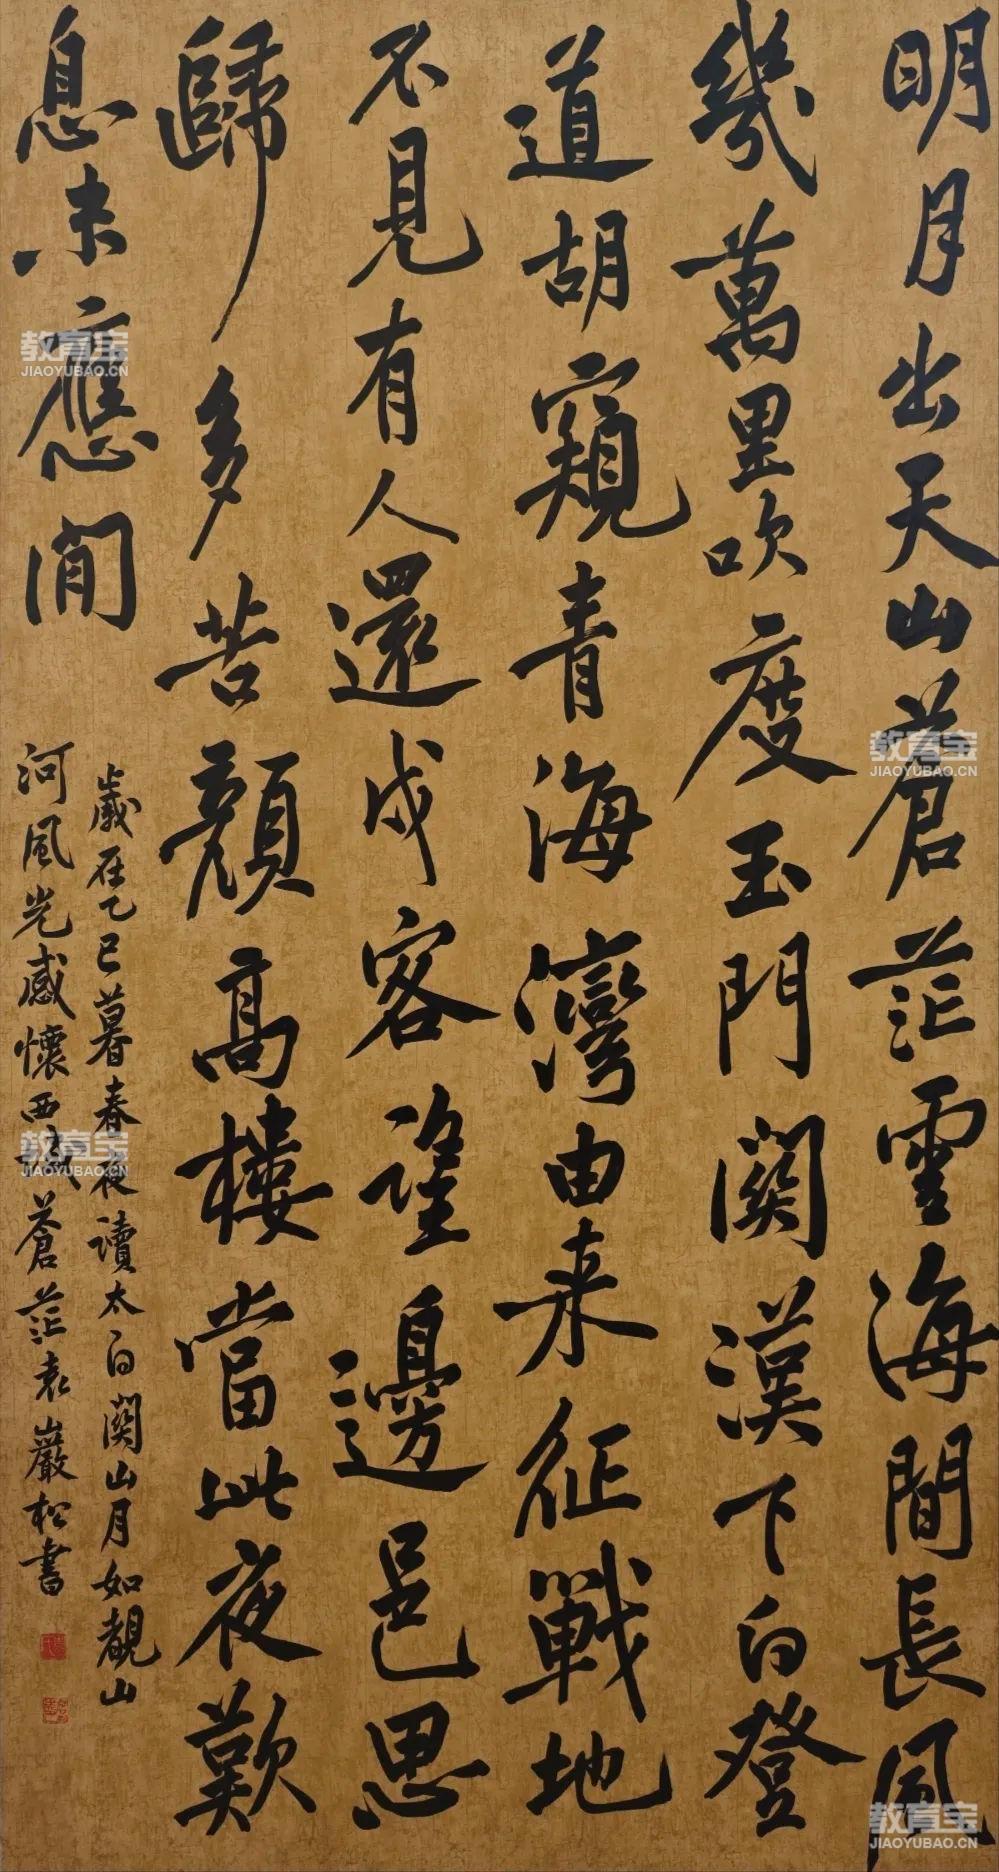 明月出天山蒼茫雲海間長風
幾萬里吹度玉門關漢下白登
道胡窺青海灣由来征戰地
不見有人還戍客望邊邑思
歸多苦顏高樓當此夜歎
息未應閒
歲在乙巳暮春夜讀太白關山月如覩山
河風光感懷西域蒼茫袁巖松書
教育宝
JIAOYUBAO.CN
教育宝
JIAOYUBAO.CN
教育宝
JIAOYUBAO.CN
教育宝
JIAOYUBAO.CN